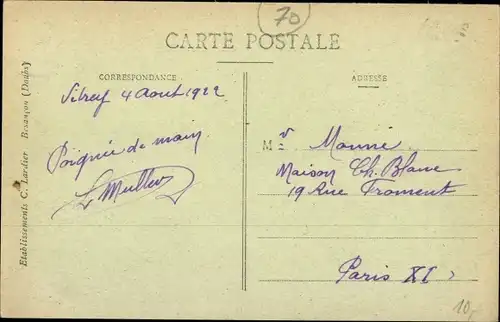 70
CARTE POSTALE
CORRESPONDANCE
ADRESSE
Vitrey 4 Aout 1922
Poignée de main
L Muller
Mr Monné
Maison Ch. Blanc
19 Rue Froment
Paris XI
Etablissements C. Lardier Besançon (Doubs)
10